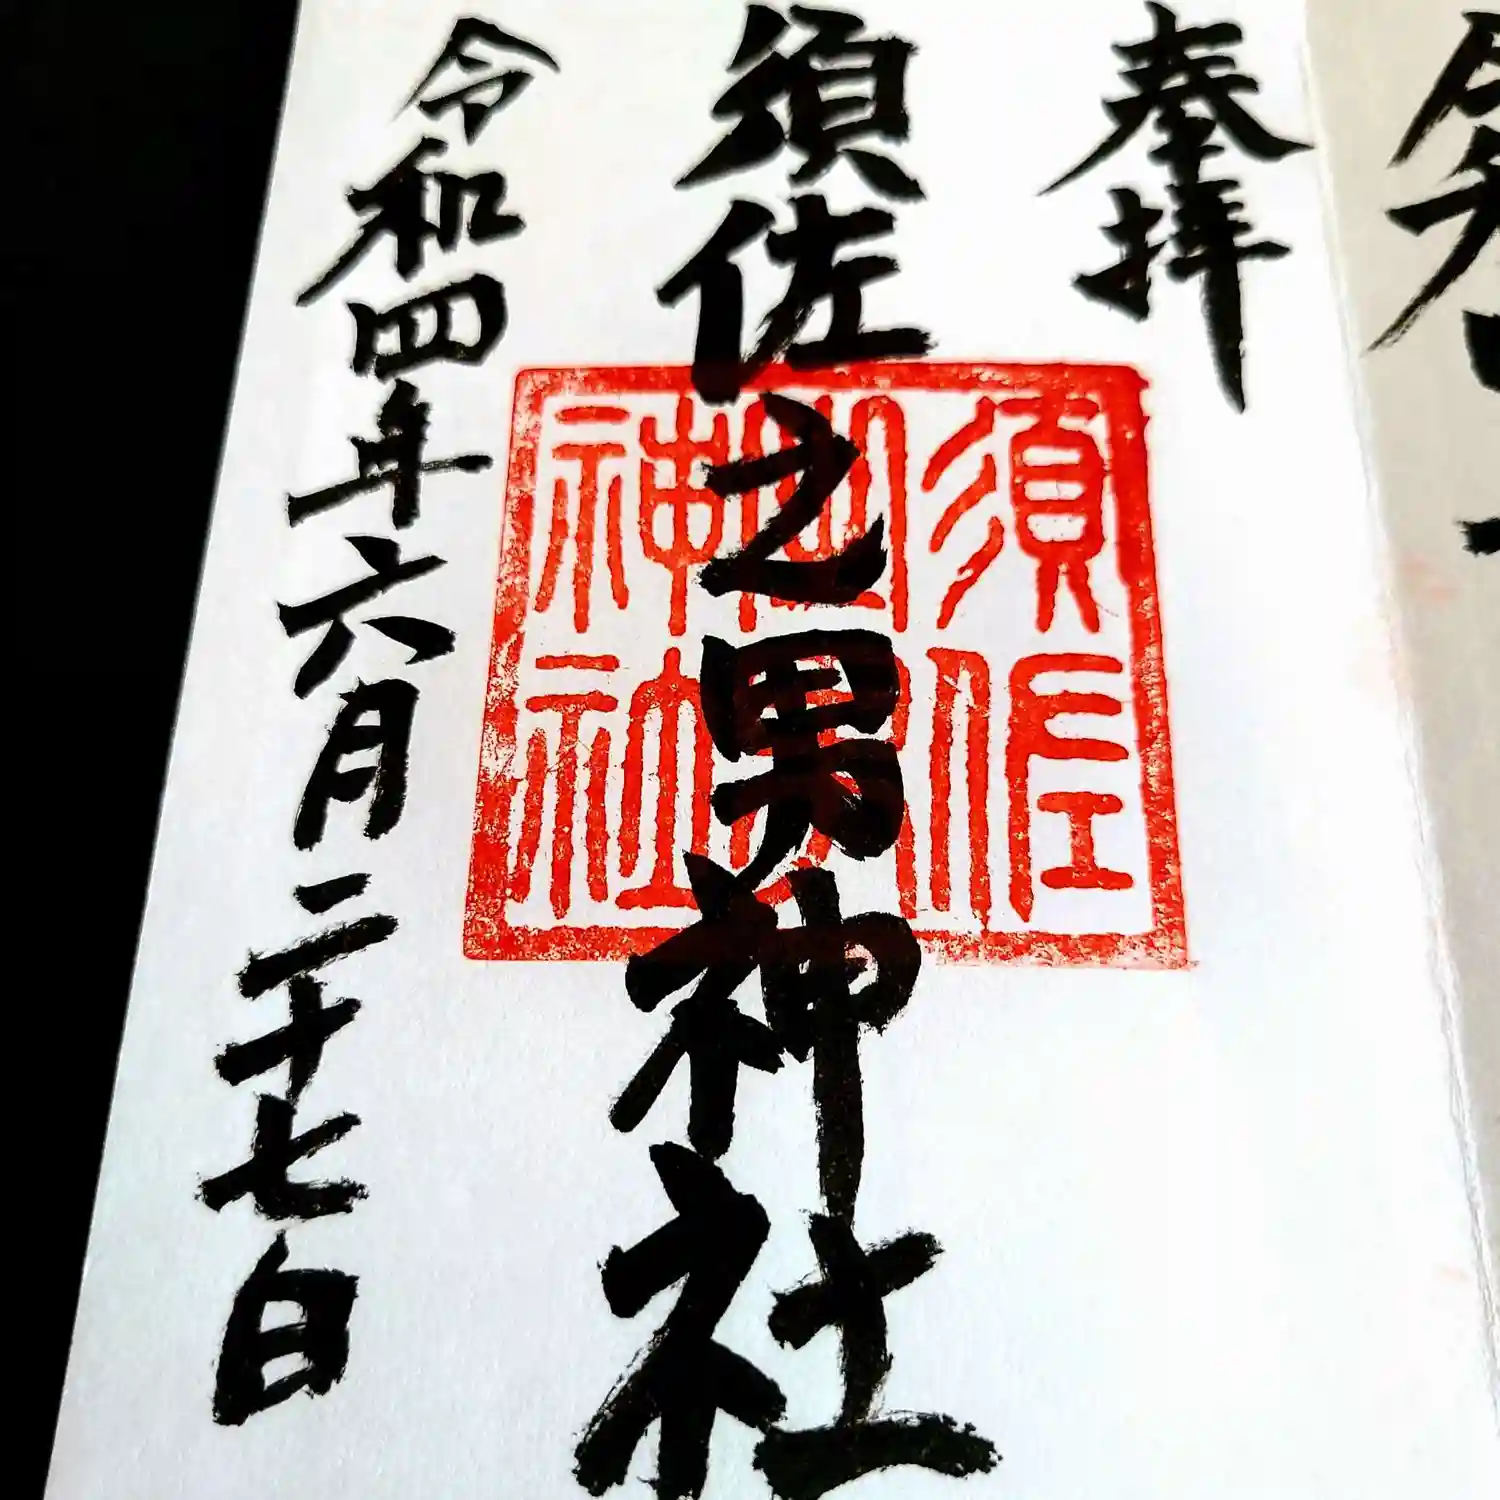 奉拝
須佐之男神社
須佐
之男
神社
令和四年六月二十七日